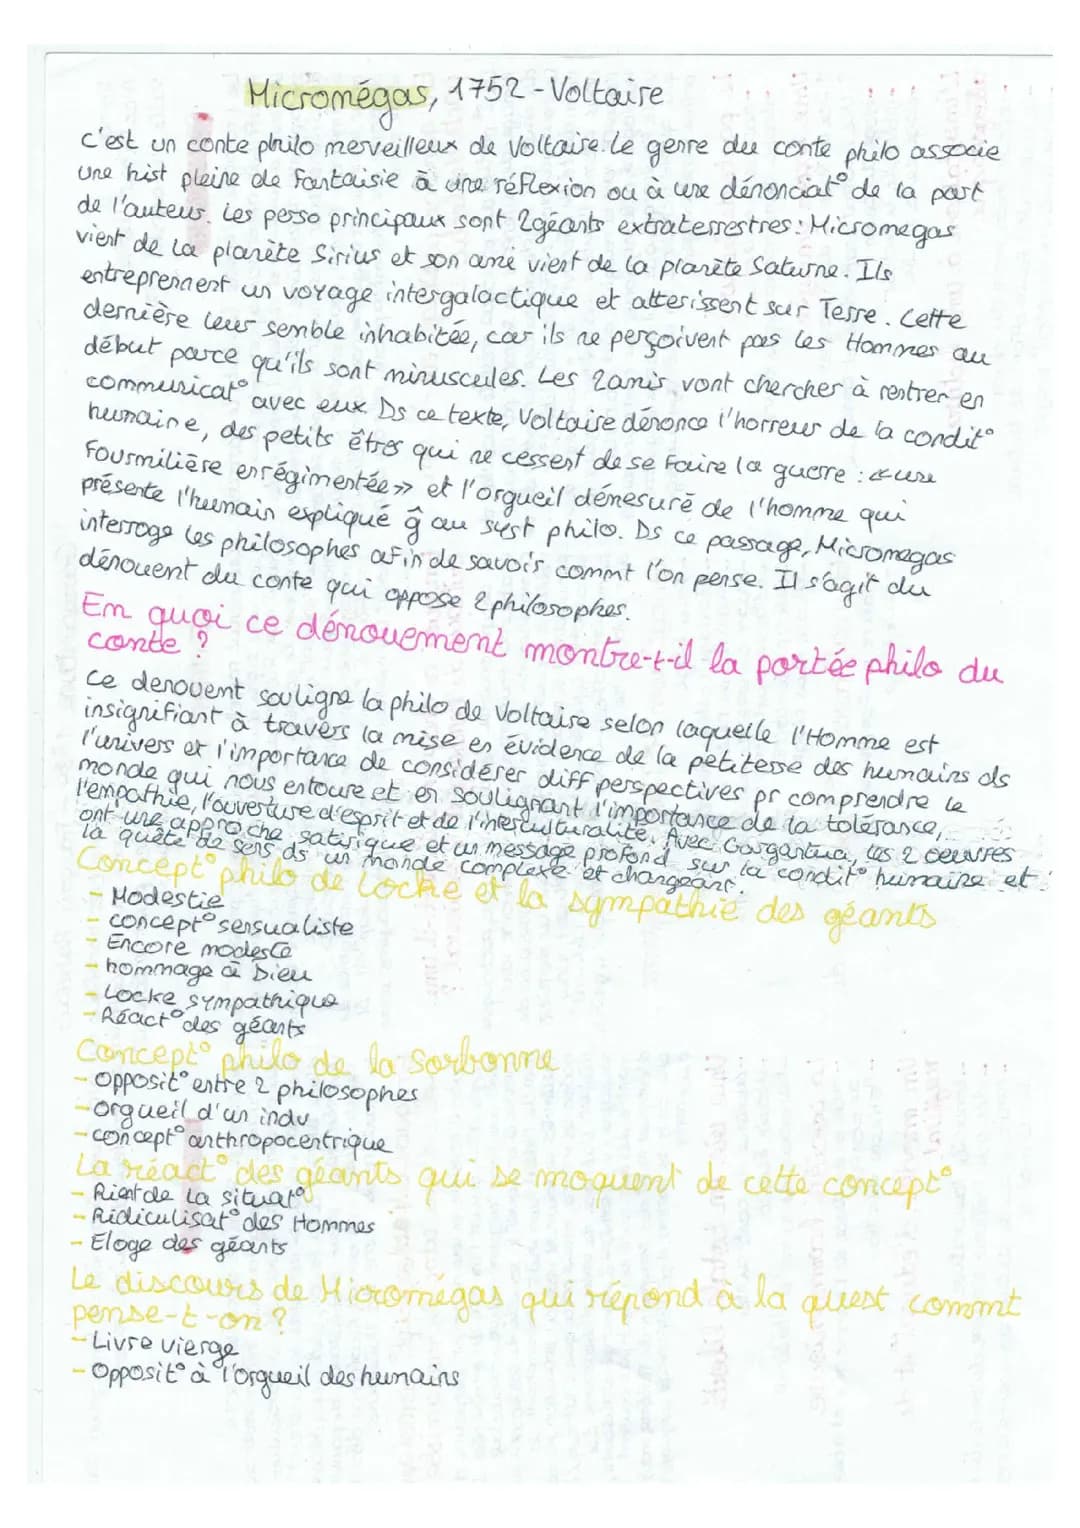 Micromégas, 1752 - Voltaire
c'est un conte philo merveilleux de Voltaire. Le genre du conte philo associe
une hist pleine de fantaisie à une réflexion ou à une dénonciat° de la part
de l'auteur. Les perso principaux sont 2 géants extraterrestres : Micromegas
vient de la planète Sirius et son ami vient de la planète Saturne. Ils
entreprennent un voyage intergalactique et atterissent sur Terre. Cette
dernière leur semble inhabitée, car ils ne perçoivent pas les Hommes au
début parce qu'ils sont minuscules. Les 2 amis vont chercher à rentrer en
communicat° avec eux. Ds ce texte, Voltaire dénonce l'horreur de la condit°
humaine, des petits êtres qui ne cessent de se faire la guerre : « une
fourmilière enrégimentée » et l'orgueil démesuré de l'homme qui
présente l'humain expliqué ĝ au syst philo. Ds ce passage, Micromegas
interroge les philosophes afin de savoir commt l'on pense. Il s'agit du
dénouent du conte qui oppose 2 philosophes.
En quoi ce dénouement montre-t-il la portée philo du
conte ?
Ce denouent souligne la philo de Voltaire selon laquelle l'Homme est
insignifiant à travers la mise en évidence de la petitesse des humains ds
l'univers et l'importance de considérer diff perspectives pr comprendre le
monde qui nous entoure et en soulignant l'importance de la tolérance,
l'empathie, l'ouverture d'esprit et de l'interculturalité. Avec Gargantua, les 2 oeuvres
ont une approche satirique et un message profond sur la condit° humaine et
la quête de sens ds un monde complexe et changeant.
Concept° philo de Locke et la sympathie des géants
- Modestie
- concept° sensualiste
- Encore modeste
- hommage à Dieu
- Locke sympathique
- Réact° des géants
Concept° philo de la Sorbonne
- Opposit° entre 2 philosophes
- orgueil d'un indv
- concept° anthropocentrique
La réact° des géants qui se moquent de cette concept°
- Rient de la situat°
- Ridiculisat° des Hommes
- Eloge des géants
Le discours de Micromégas qui répond à la quest commt
pense-t-on ?
- Livre vierge
- Opposit° à l'orgueil des humains